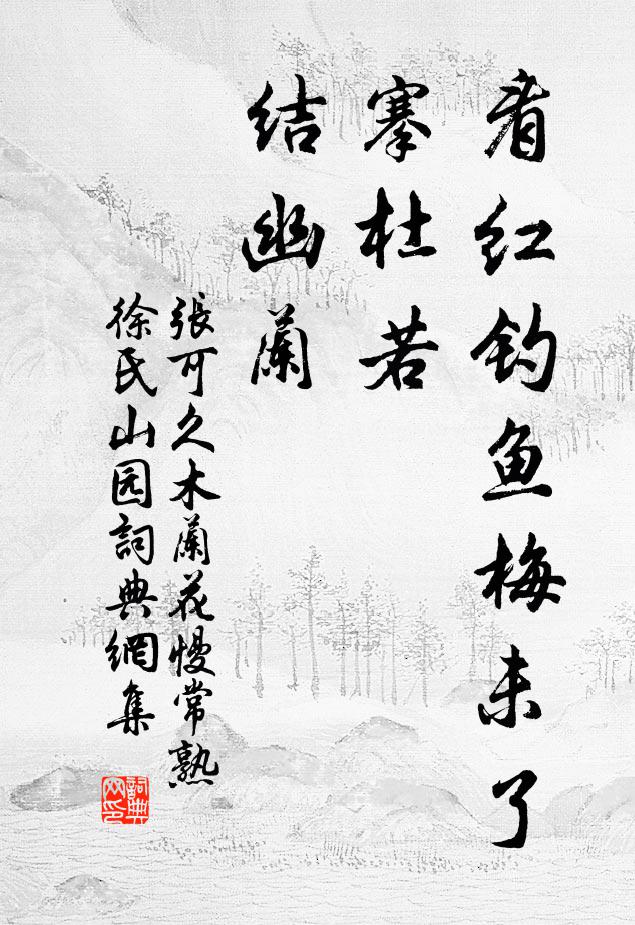 看红钓鱼梅未了
搴杜若
结幽蘭
張可久木蘭花慢常熟
徐氏山园詞典網集
詞典网印